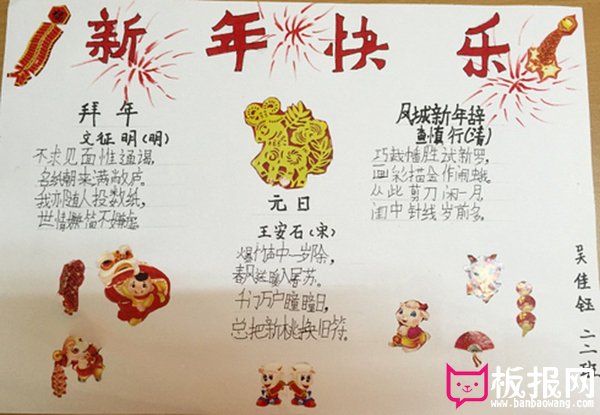 新年快乐
拜年
文征明(明)
不求见面惟通谒,
名纸朝来满敝庐。
我亦随人投数纸,
世情嫌简不嫌虚。
元日
王安石(宋)
爆竹声中一岁除,
春风送暖入屠苏。
千门万户瞳瞳日,
总把新桃换旧符。
凤城新年辞
查慎行(清)
巧裁幡胜试新罗,
画彩描金作闹蛾。
从此剪刀闲一月,
闺中针线岁前多。
吴佳钰 二二班
板报网
www.banbaowang.com